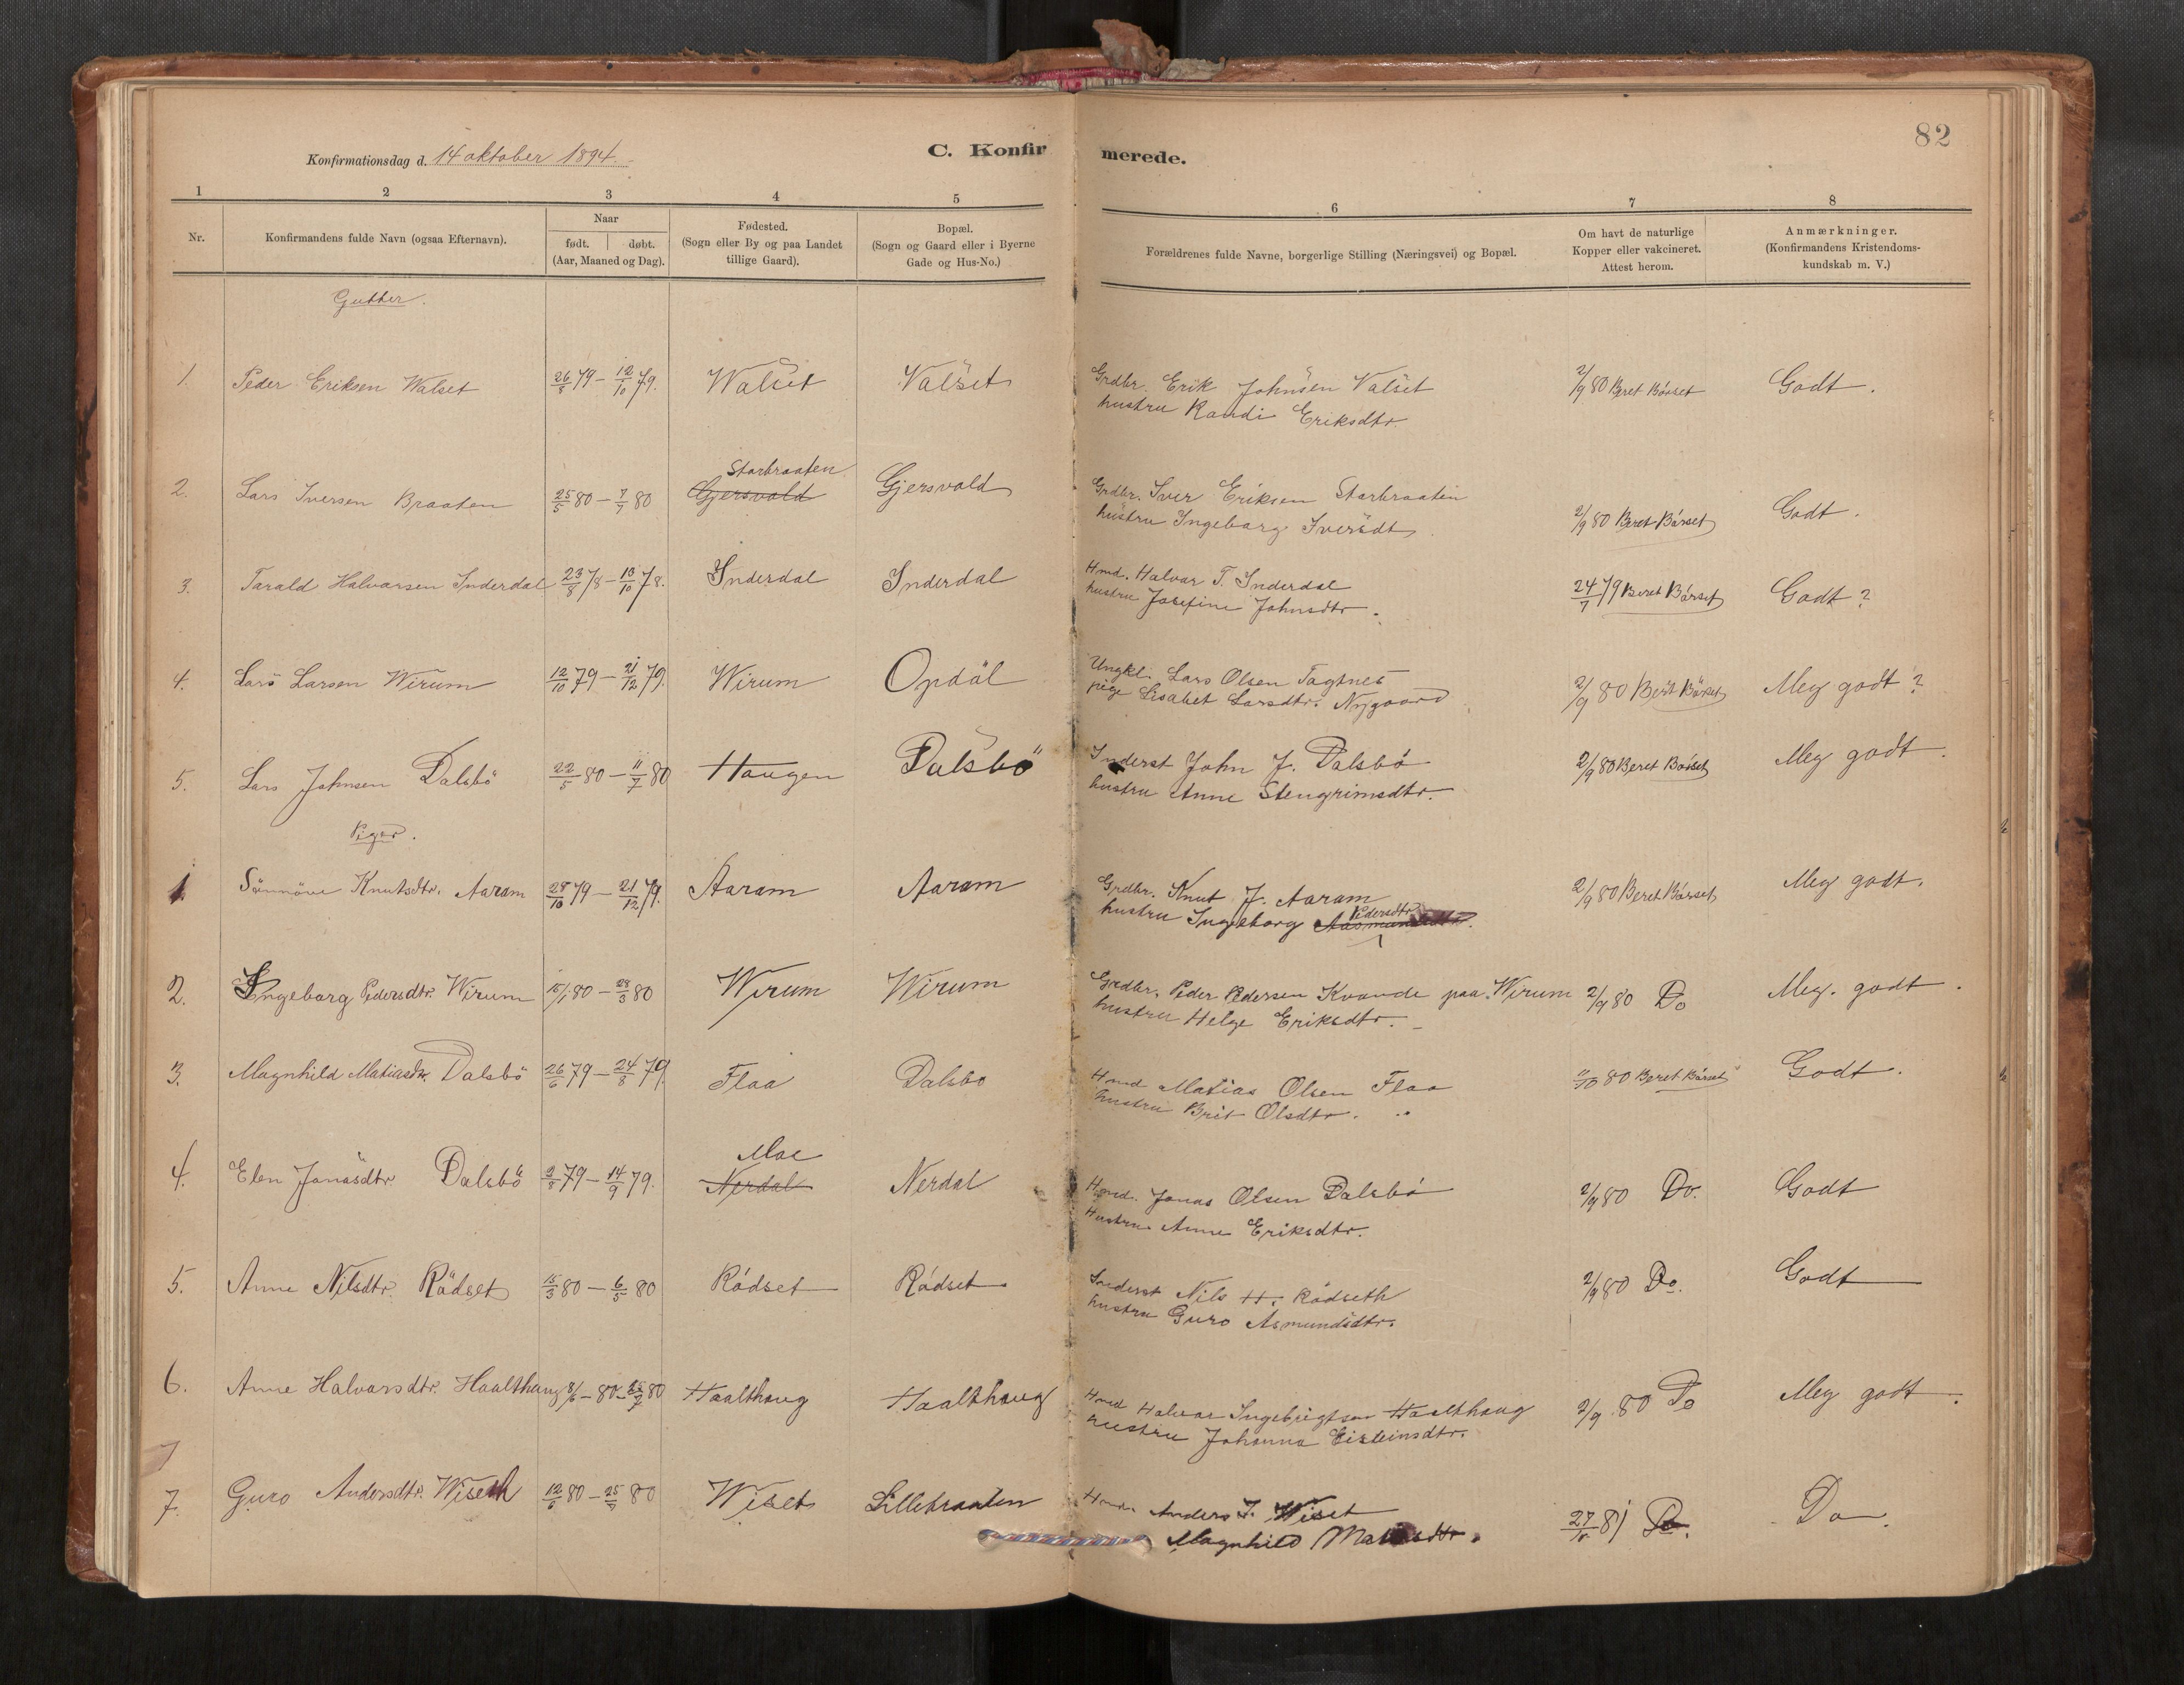 82
Konfirmationsdag d. 14 oktober 1894.
C. Konfirmerede.
1 2 3 4 5 6 7 8
Nr.
Konfirmandens fulde Navn (ogsaa Efternavn).
Naar
født. | døbt.
(Aar, Maaned og Dag).
Fødested.
(Sogn eller By og paa Landet
tillige Gaard).
Bopæl.
(Sogn og Gaard eller i Byerne
Gade og Hus-No.)
Forældrenes fulde Navne, borgerlige Stilling (Næringsvei) og Bopæl.
Om havt de naturlige
Kopper eller vakcineret.
Attest herom.
Anmærkninger.
(Konfirmandens Kristendoms-
kundskab m. V.)
Gutter.
1. Peder Eriksen Walset 26/8 79 – 12/10 79. Walset Valset Grdbr. Erik Johnsen Valset 2/9 80 Beret Børset Godt.
hustru Randi Eriksdtr.
Storbraaten
2. Lars Iversen Braaten 25/5 80 – 7/7 80 Gjersvold Gjersvold Grdbr. Iver Eriksen Storbraaten 2/9 80 Beret Børset Godt.
hustru Ingeborg Iversdt
3. Tarald Halvorsen Inderdal 23/8 78 – 13/10 78. Inderdal Inderdal Hmd. Halvor T. Inderdal 24/7 79 Beret Børset Godt?
hustru Josefine Johnsdtr.
4. Lars Larsen Wirum 12/10 79 – 21/12 79. Wirum Opdøl Ungkl. Lars Olsen Tagtnes 2/9 80 Berit Børset Meg godt?
pige Lisabet Larsdtr. Nygaard
5. Lars Johnsen Dalsbö 22/5 80 – 11/7 80 Haugen Dalsbö Inderst John J. Dalsbö 2/9 80 Beret Børset Meg godt.
hustru Anne Stengrimsdtr.
Piger.
1. Sönnöve Knutsdtr. Aaram 28/10 79 – 21/12 79. Aaram Aaram Grdbr. Knut J. Aaram 2/9 80 Beret Børset Meg godt.
Pedersdtr
hustru Ingeborg Aasmundsdtr.
2. Ingeborg Pedersdtr. Wirum 15/1 80 – 28/3 80 Wirum Wirum Grdbr. Peder Pedersen Kvande paa Wirum 2/9 80 Do Meg. godt.
hustru Helge Eriksdtr.
3. Magnhild Matiasdtr. Dalsbö 26/6 79 – 24/8 79. Flaa Dalsbo Hmd Matias Olsen Flaa 11/10 80 Beret Børset Godt.
hustru Brit Olsdtr.
Moe
4. Elen Jonasdtr. Dalsbö 2/8 79 – 14/9 79. Nerdal Nerdal Hmd. Jonas Olsen Dalsbö 2/9 80 Do. Godt
Hustru Anne Eriksdtr.
5. Anne Nilsdtr. Rödset 15/3 80 – 6/5 80 Rödset Rödset Inderst Nils H. Rödseth 2/9 80 Do. Godt
hustru Guro Asmundsdtr.
6. Anne Halvorsdtr. Haalthaug 8/6 – 80 – 25/7 80 Haalthaug Haalthaug Hmd Halvor Ingebrigtsen Haalthaug 2/9 80 Do Meg godt.
hustru Johanna Eisteinsdtr.
7
7. Guro Andersdtr. Wiseth 12/6 80 – 25/7 80 Wiset Lillebraaten Hmd. Anders J. Wiset 27/5 81 Do. Do.
Magnhild